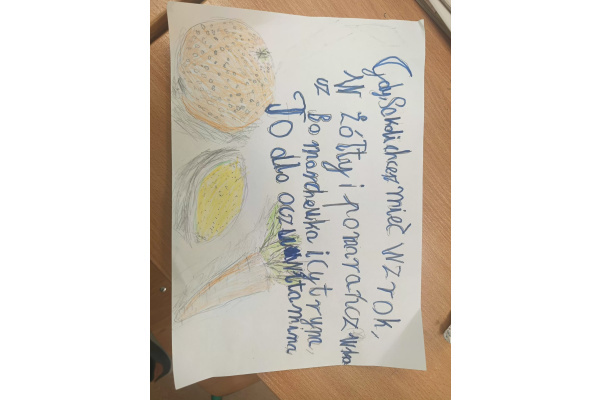 Gdy Sokoli chcesz mieć wzrok,
W żółty i pomarańcz wkro
cz
Bo marchewka i cytryna,
To dla oczu witamina